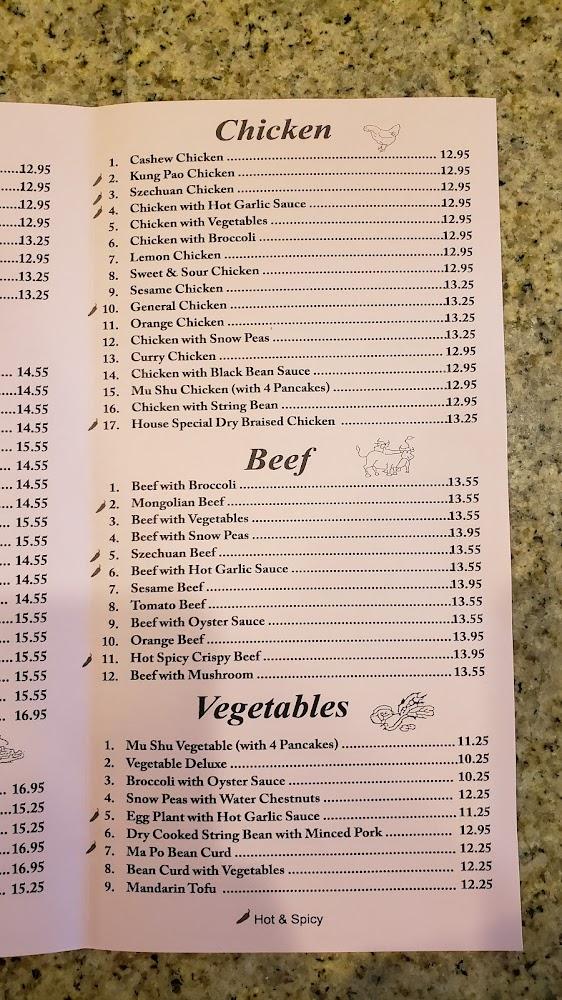 .....12.95
...12.95
...12.95
...12.95
...13.25
...12.95
...13.25
....13.25
... 14.55
...14.55
...14.55
...14.55
... 15.55
... 14.55
... 14.55
... 14.55
... 15.55
... 15.55
... 14.55
... 14.55
.. 14.55
...15.55
... 15.55
...15.55
.. 15.55
.. 15.55
.. 16.95
.. 16.95
...15.25
.. 15.25
...16.95
... 16.95
.. 15.25
Chicken
1. Cashew Chicken ........ 12.95
2. Kung Pao Chicken ........ 12.95
3. Szechuan Chicken ........ 12.95
4. Chicken with Hot Garlic Sauce ........ 12.95
5. Chicken with Vegetables ........ 12.95
6. Chicken with Broccoli ........ 12.95
7. Lemon Chicken ........ 12.95
8. Sweet & Sour Chicken ........ 12.95
9. Sesame Chicken ........ 13.25
10. General Chicken ........ 13.25
11. Orange Chicken ........ 13.25
12. Chicken with Snow Peas ........ 13.25
13. Curry Chicken ........ 12.95
14. Chicken with Black Bean Sauce ........ 12.95
15. Mu Shu Chicken (with 4 Pancakes) ........ 12.95
16. Chicken with String Bean ........ 12.95
17. House Special Dry Braised Chicken ........ 13.25
Beef
1. Beef with Broccoli ........ 13.55
2. Mongolian Beef ........ 13.55
3. Beef with Vegetables ........ 13.55
4. Beef with Snow Peas ........ 13.95
5. Szechuan Beef ........ 13.55
6. Beef with Hot Garlic Sauce ........ 13.55
7. Sesame Beef ........ 13.95
8. Tomato Beef ........ 13.55
9. Beef with Oyster Sauce ........ 13.55
10. Orange Beef ........ 13.95
11. Hot Spicy Crispy Beef ........ 13.95
12. Beef with Mushroom ........ 13.55
Vegetables
1. Mu Shu Vegetable (with 4 Pancakes) ........ 11.25
2. Vegetable Deluxe ........ 10.25
3. Broccoli with Oyster Sauce ........ 10.25
4. Snow Peas with Water Chestnuts ........ 12.25
5. Egg Plant with Hot Garlic Sauce ........ 11.25
6. Dry Cooked String Bean with Minced Pork ........ 12.95
7. Ma Po Bean Curd ........ 12.25
8. Bean Curd with Vegetables ........ 12.25
9. Mandarin Tofu ........ 12.25
Hot & Spicy